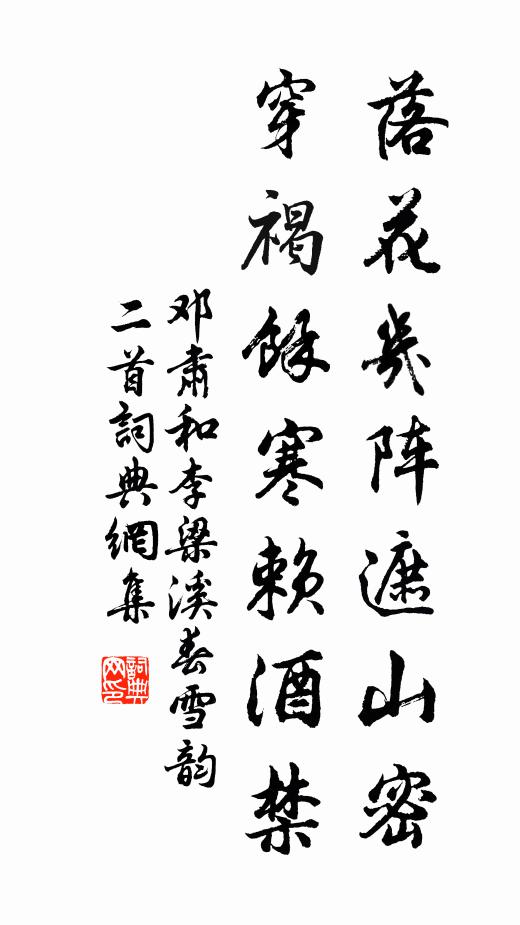 落花几阵遮山密
穿褐餘寒赖酒禁
邓肃和李梁溪春雪韵
二首詞典網集
詞典网印